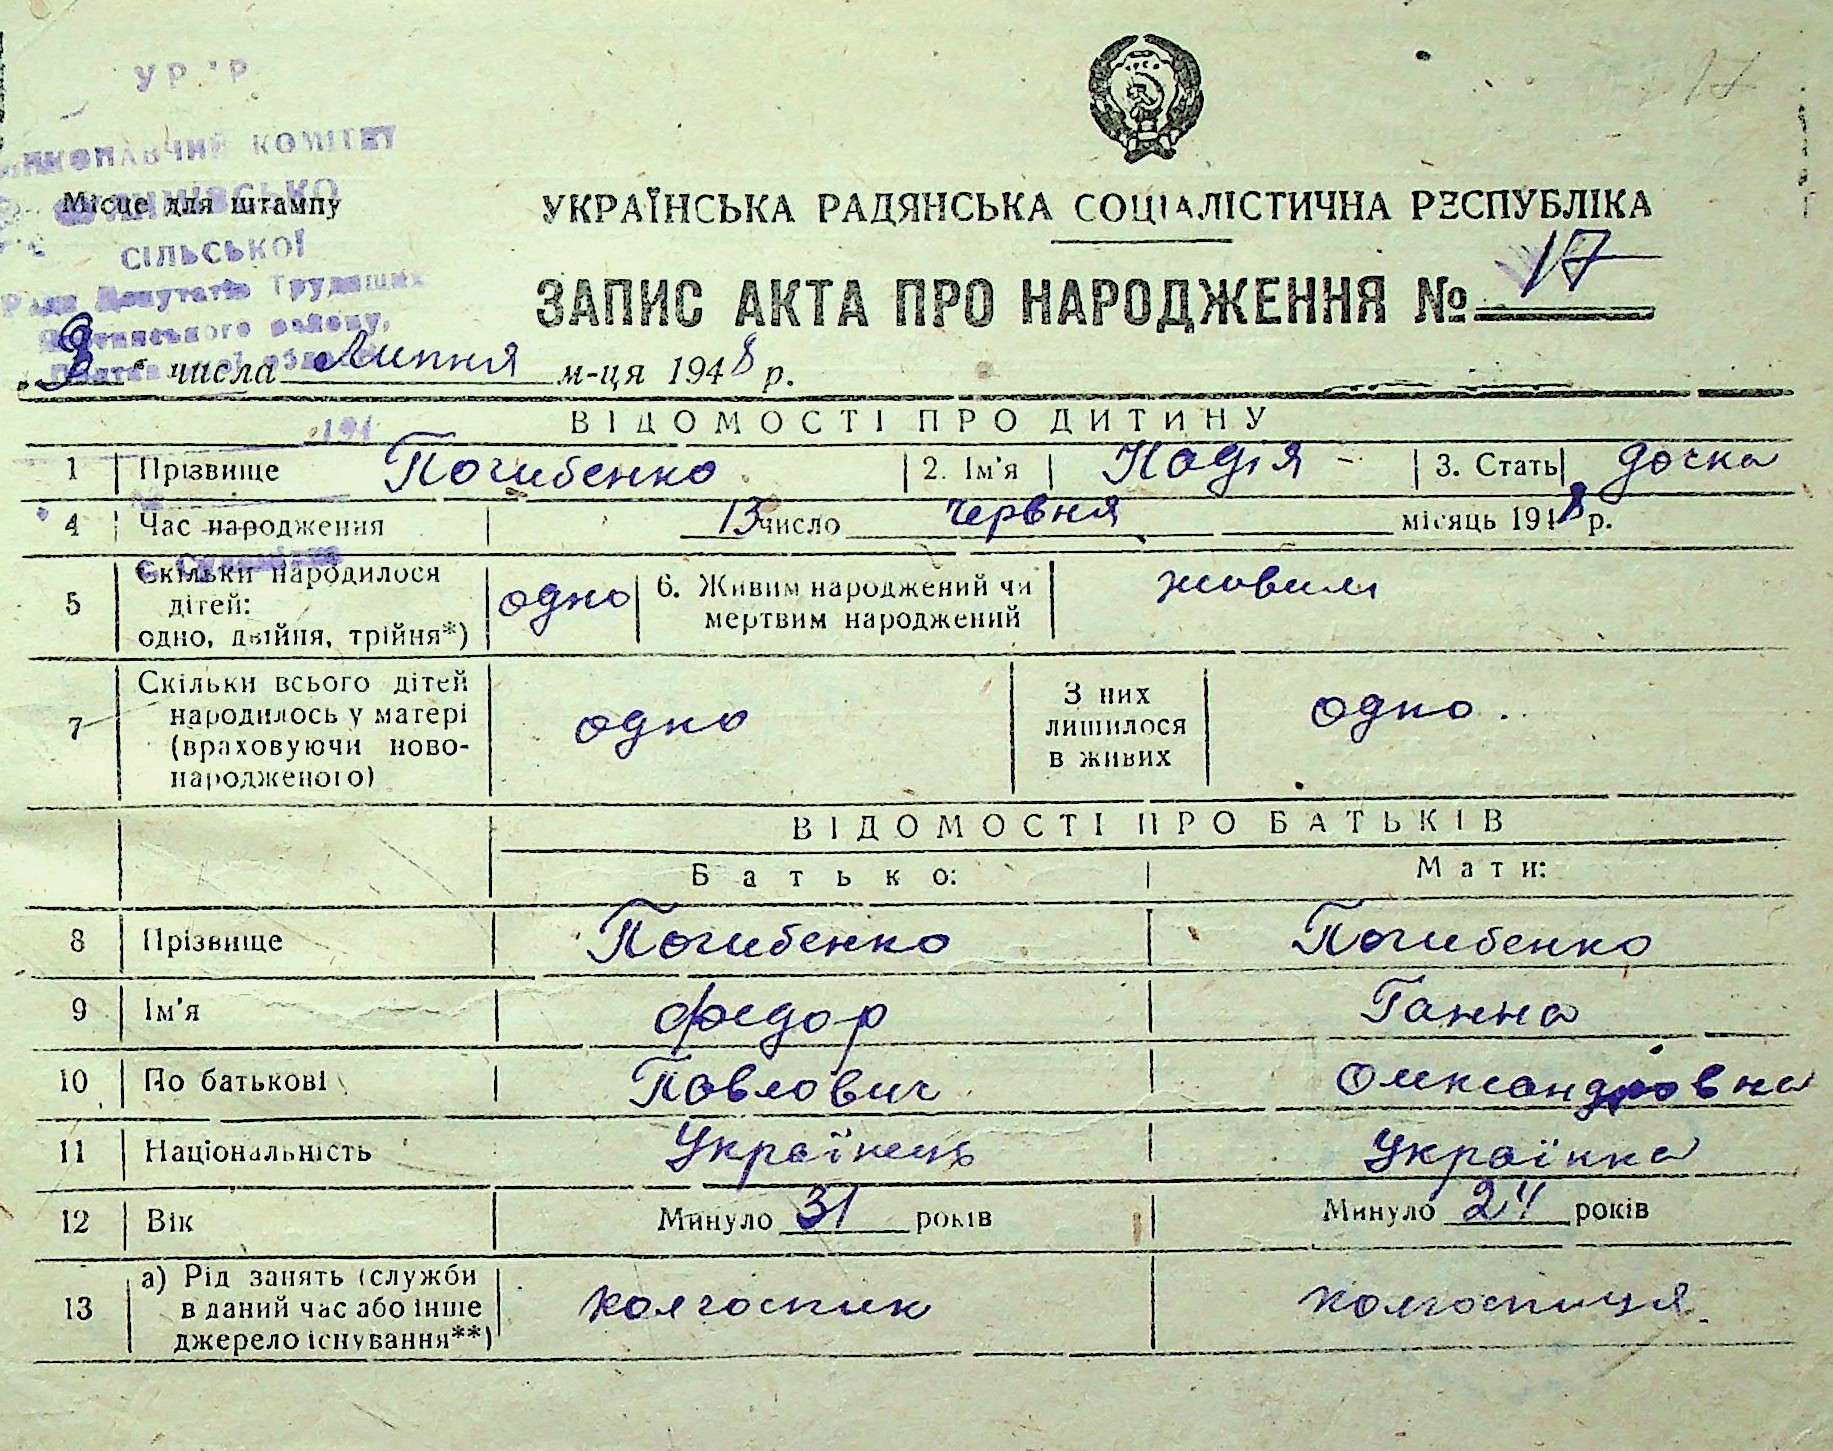 17
УРСР
ВИКОНАВЧИЙ КОМІТЕТ
Місце для штампу
СІЛЬСЬКОЇ
Ради Депутатів Трудящих
району,
УКРАЇНСЬКА РАДЯНСЬКА СОЦІАЛІСТИЧНА РЕСПУБЛІКА
ЗАПИС АКТА ПРО НАРОДЖЕННЯ № 17
числа Липня м-ця 1948 р.
ВІДОМОСТІ ПРО ДИТИНУ
194
1 Прізвище Погибенко 2. Ім'я Надія 3. Стать дочка
4 Час народження 13 число червня місяць 1948 р.
5 Скільки народилося дітей: одно, двійня, трійня*) одно 6. Живим народжений чи мертвим народжений живим
7 Скільки всього дітей народилось у матері (враховуючи новонародженого) одно З них лишилося в живих одно.
ВІДОМОСТІ ПРО БАТЬКІВ
Батько: Мати:
8 Прізвище Погибенко Погибенко
9 Ім'я Федор Ганна
10 По батькові Павлович Олександровна
11 Національність Українець Українка
12 Вік Минуло 31 років Минуло 24 років
13 а) Рід занять (служби в даний час або інше джерело існування**) колгоспник колгоспниця